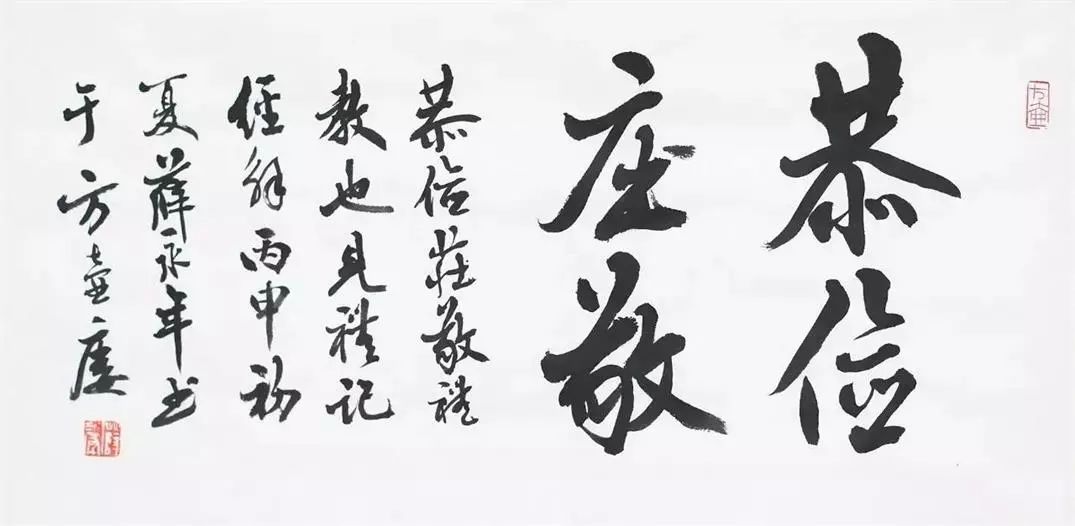 恭儉
庄敬
恭儉莊敬禮
教也見禮記
經解丙申初
夏薛永年書
于方壺廔